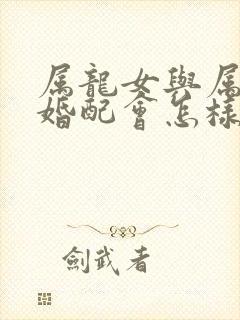 属龍女與属
婚配會怎樣
劍武者